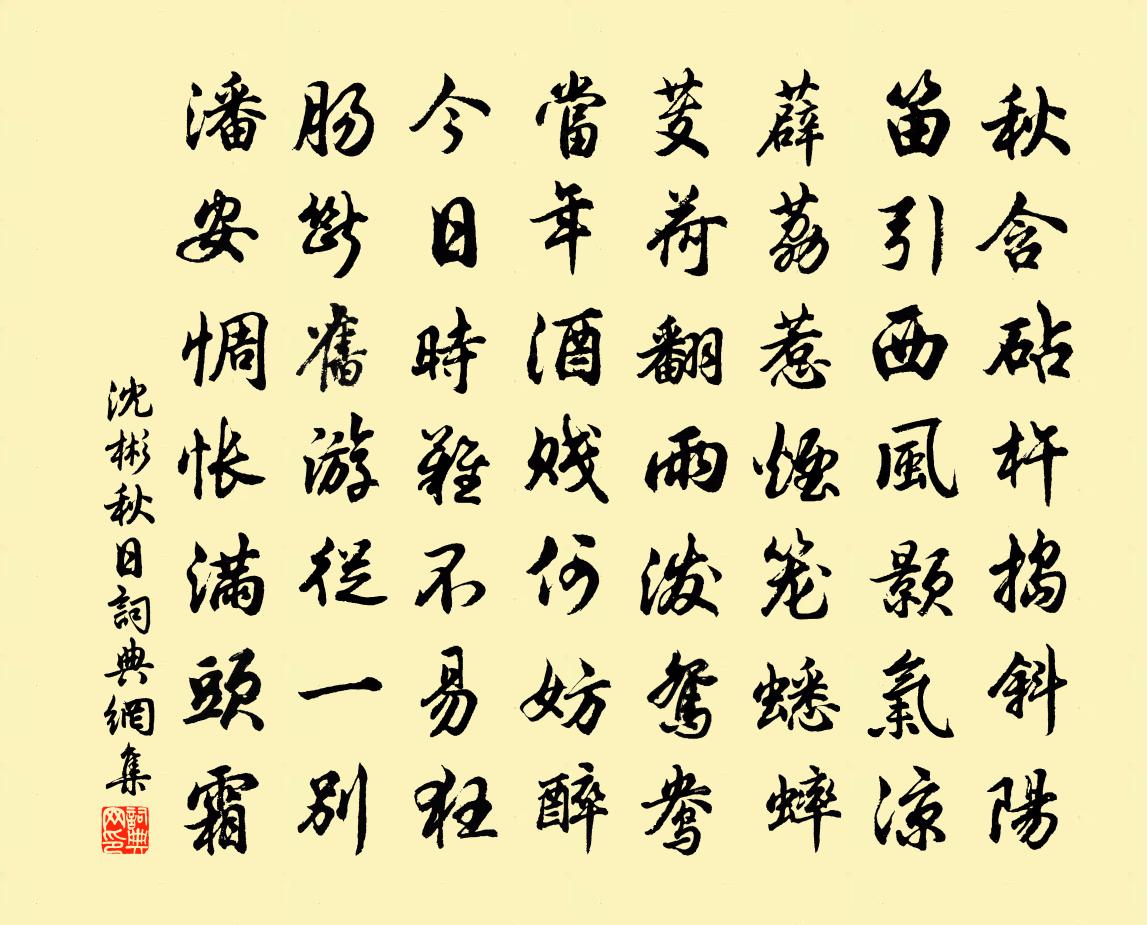 秋含砧杵搗斜陽
笛引西風顥氣涼
薜荔惹煙籠蟋蟀
芰荷翻雨潑鴛鴦
當年酒賤何妨醉
今日時難不易狂
腸斷舊游從一別
潘安惆悵滿頭霜
沈彬秋日詞典網集
詞典网印